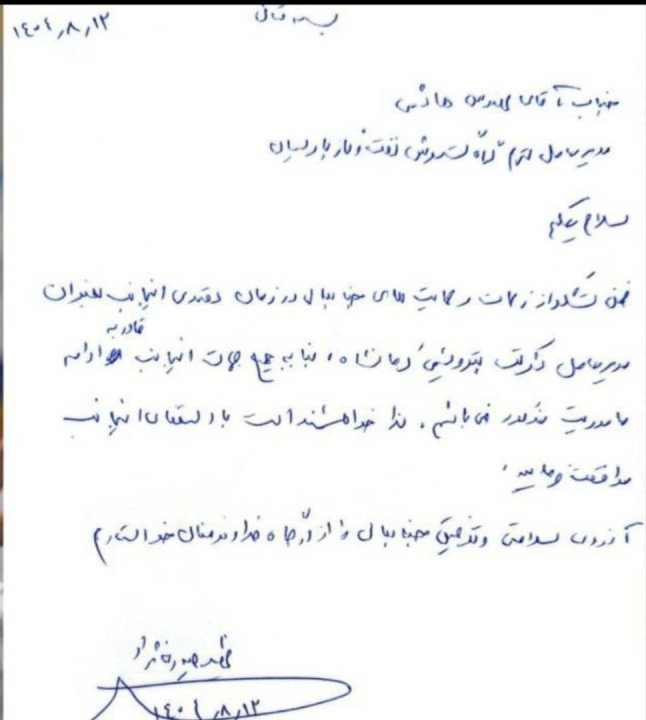 بسمه تعالی
۱۴۰۴٫۸٫۱۲
جناب آقای مهندس هاشمی
مدیرعامل محترم گروه گسترش نفت و گاز پارسیان
سلام علیکم
ضمن تشکر از زحمات و حمایت های جنابعالی در زمان تصدی اینجانب بعنوان
مدیرعامل شرکت پتروشیمی کرمانشاه، بنا به جمیع جهات اینجانب قادر به ادامه
ماموریت مذکور نمی باشم. لذا خواهشمند است با استعفای اینجانب
موافقت فرمایید.
آرزوی سلامتی و توفیق جنابعالی را از درگاه خداوند منان خواستارم
۱۴۰۴٫۸٫۱۲